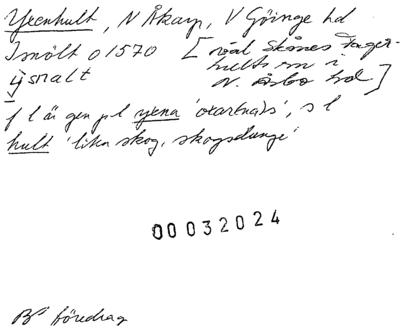 Yxenhult, N Åkarp, V Göinge hd
Ismölt o 1570 [väl Skånes Fager-
ÿsnalt hults sn i
N. Åsbo hd]
f l är gen pl yxna 'oxarna(s)', s l
hult 'lika skog, skogsdunge'
00032024
föredrag